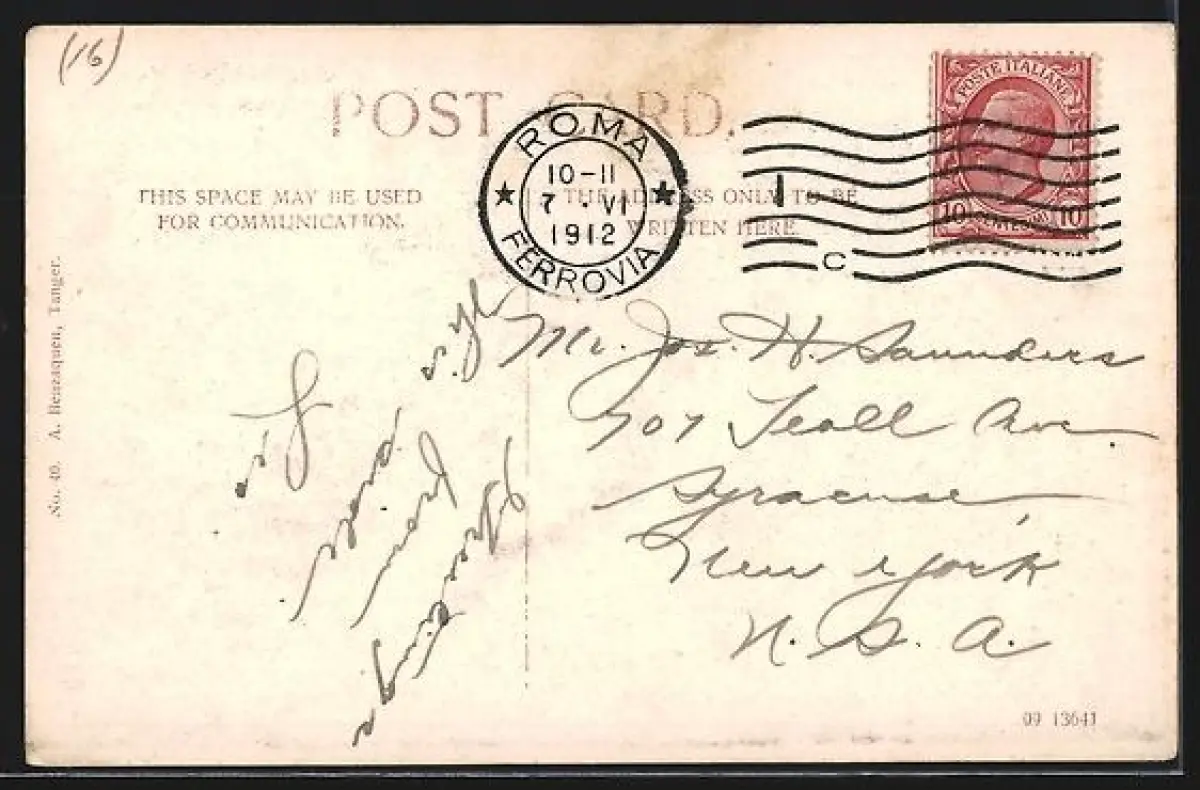 (16)
POST CARD.
THIS SPACE MAY BE USED
FOR COMMUNICATION.
THE ADDRESS ONLY TO BE
WRITTEN HERE.
ROMA
10-11
7 · VI
1912
FERROVIA
1
C
POSTE ITALIANE
10 CENTESIMI 10
No. 40. A. Benzaquen, Tanger.
Mr. Jos. H. Saunders
707 Teall Ave.
Syracuse,
New York
U. S. A.
09 13641